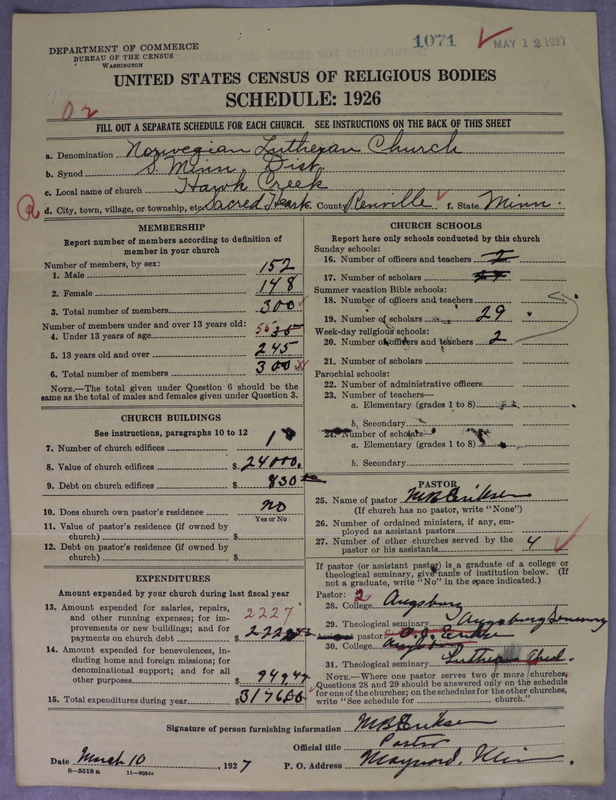 1071 MAY 12 1927
DEPARTMENT OF COMMERCE
BUREAU OF THE CENSUS
WASHINGTON
UNITED STATES CENSUS OF RELIGIOUS BODIES
SCHEDULE: 1926
FILL OUT A SEPARATE SCHEDULE FOR EACH CHURCH. SEE INSTRUCTIONS ON THE BACK OF THIS SHEET
a. Denomination Norwegian Lutheran Church
b. Synod S. Minn. Dist.
c. Local name of church Hawk Creek
d. City, town, village, or township, etc. Sacred Heart e. County Renville f. State Minn.
MEMBERSHIP
Report number of members according to definition of
member in your church
Number of members, by sex:
1. Male 152
2. Female 148
3. Total number of members 300
Number of members under and over 13 years old:
4. Under 13 years of age 55
5. 13 years old and over 245
6. Total number of members 300
NOTE.—The total given under Question 6 should be
the same as the total of males and females given under Question 3.
CHURCH BUILDINGS
See instructions, paragraphs 10 to 12
7. Number of church edifices 1
8. Value of church edifices $24000.
9. Debt on church edifices $830
10. Does church own pastor's residence no
Yes or No
11. Value of pastor's residence (if owned by
church) $
12. Debt on pastor's residence (if owned by
church) $
EXPENDITURES
Amount expended by your church during last fiscal year
13. Amount expended for salaries, repairs,
and other running expenses; for im-
provements or new buildings; and for
payments on church debt $ 2227
14. Amount expended for benevolences,
including home and foreign missions; for
denominational support; and for all
other purposes $ 949
15. Total expenditures during year $3176
CHURCH SCHOOLS
Report here only schools conducted by this church
Sunday schools:
16. Number of officers and teachers
17. Number of scholars
Summer vacation Bible schools:
18. Number of officers and teachers
19. Number of scholars 29
Week-day religious schools:
20. Number of officers and teachers 2
21. Number of scholars
Parochial schools:
22. Number of administrative officers
23. Number of teachers—
a. Elementary (grades 1 to 8)
b. Secondary
24. Number of scholars—
a. Elementary (grades 1 to 8)
b. Secondary
PASTOR
25. Name of pastor
(If church has no pastor, write "None")
26. Number of ordained ministers, if any, em-
ployed as assistant pastors
27. Number of other churches served by the
pastor or his assistants 4
If pastor (or assistant pastor) is a graduate of a college or
theological seminary, give name of institution below. (If
not a graduate, write "No" in the space indicated.)
Pastor: 2
28. College Augsburg
29. Theological seminary Augsburg Seminary
pastor
30. College
31. Theological seminary Luther
NOTE.—Where one pastor serves two or more churches,
Questions 28 and 29 should be answered only on the schedule
for one of the churches; on the schedules for the other churches,
write "See schedule for church."
Signature of person furnishing information
Official title Pastor
Date March 10, 1927 P. O. Address Maynard,
8—5518 a 11—9554